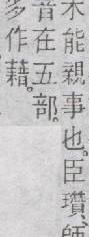 未能親事也。臣瓚、師
音在五部。
多作藉。